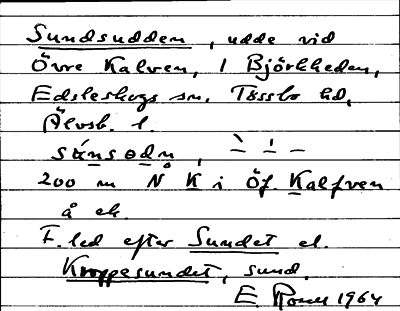 Sundsudden, udde vid
Övre Kalven, 1 Björkheden,
Edsleskogs sn, Tössbo hd,
Älvsb. l.
200 m N K i Öf. Kalfven
å ek.
F. led efter Sundet el.
Kroppesundet, sund.
E. 1964